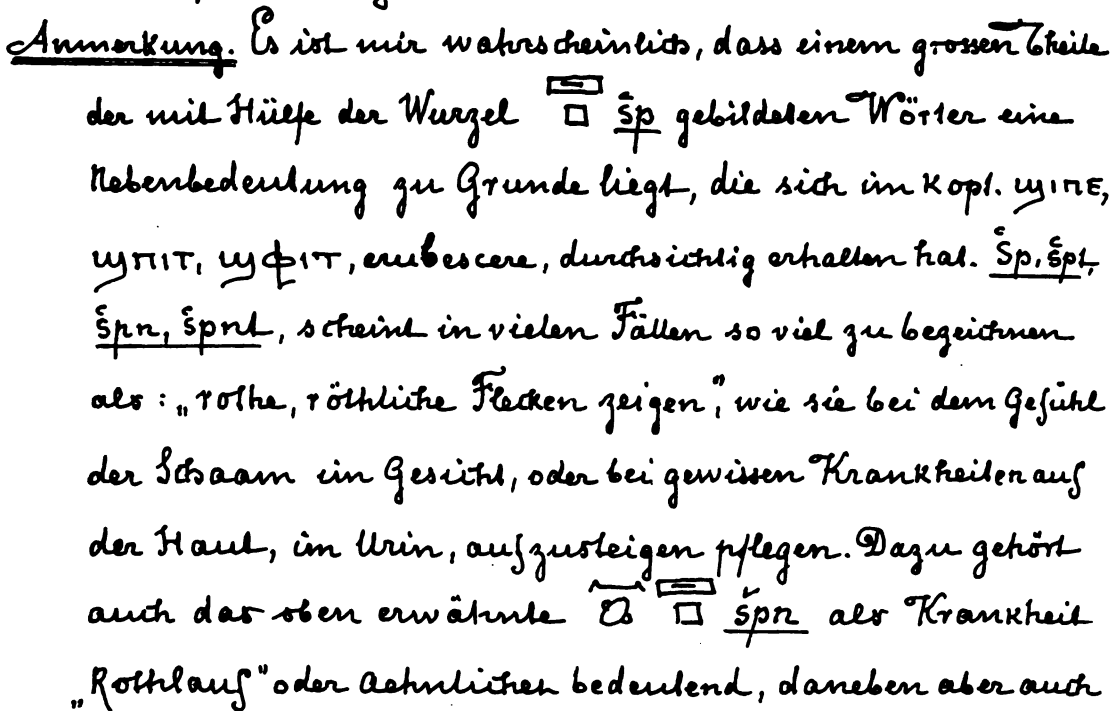 Anmerkung. Es ist mir wahrscheinlich, dass einem grossen Theile
der mit Hülfe der Wurzel 𓈙𓊪 šp gebildeten Wörter eine
Nebenbedeutung zu Grunde liegt, die sich im Kopt. ϣⲓⲡⲉ,
ϣⲡⲓⲧ, ϣⲫⲓⲧ, erubescere, durchsichtig erhalten hat. Šp, špt,
špn, špnt, scheint in vielen Fällen so viel zu bezeichnen
als: „rothe, röthliche Flecken zeigen", wie sie bei dem Gefühl
der Schaam im Gesicht, oder bei gewissen Krankheiten auf
der Haut, im Urin, aufzusteigen pflegen. Dazu gehört
auch das oben erwähnte 𓈙𓊪 špn als Krankheit
„Rothlauf" oder Aehnliches bedeutend, daneben aber auch